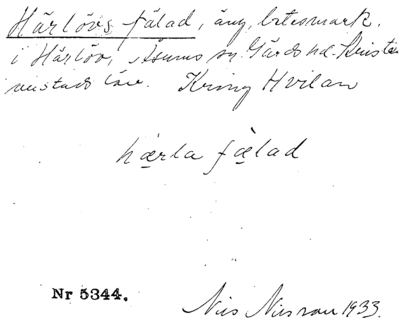 Härlövs fälad, äng, betesmark.
i Härlöv, Åsums sn. Gärds hd. Kristia
nstads län. Kring Hvilan
hærla fælad
Nr 5344.
Nils Nilsson 1933.